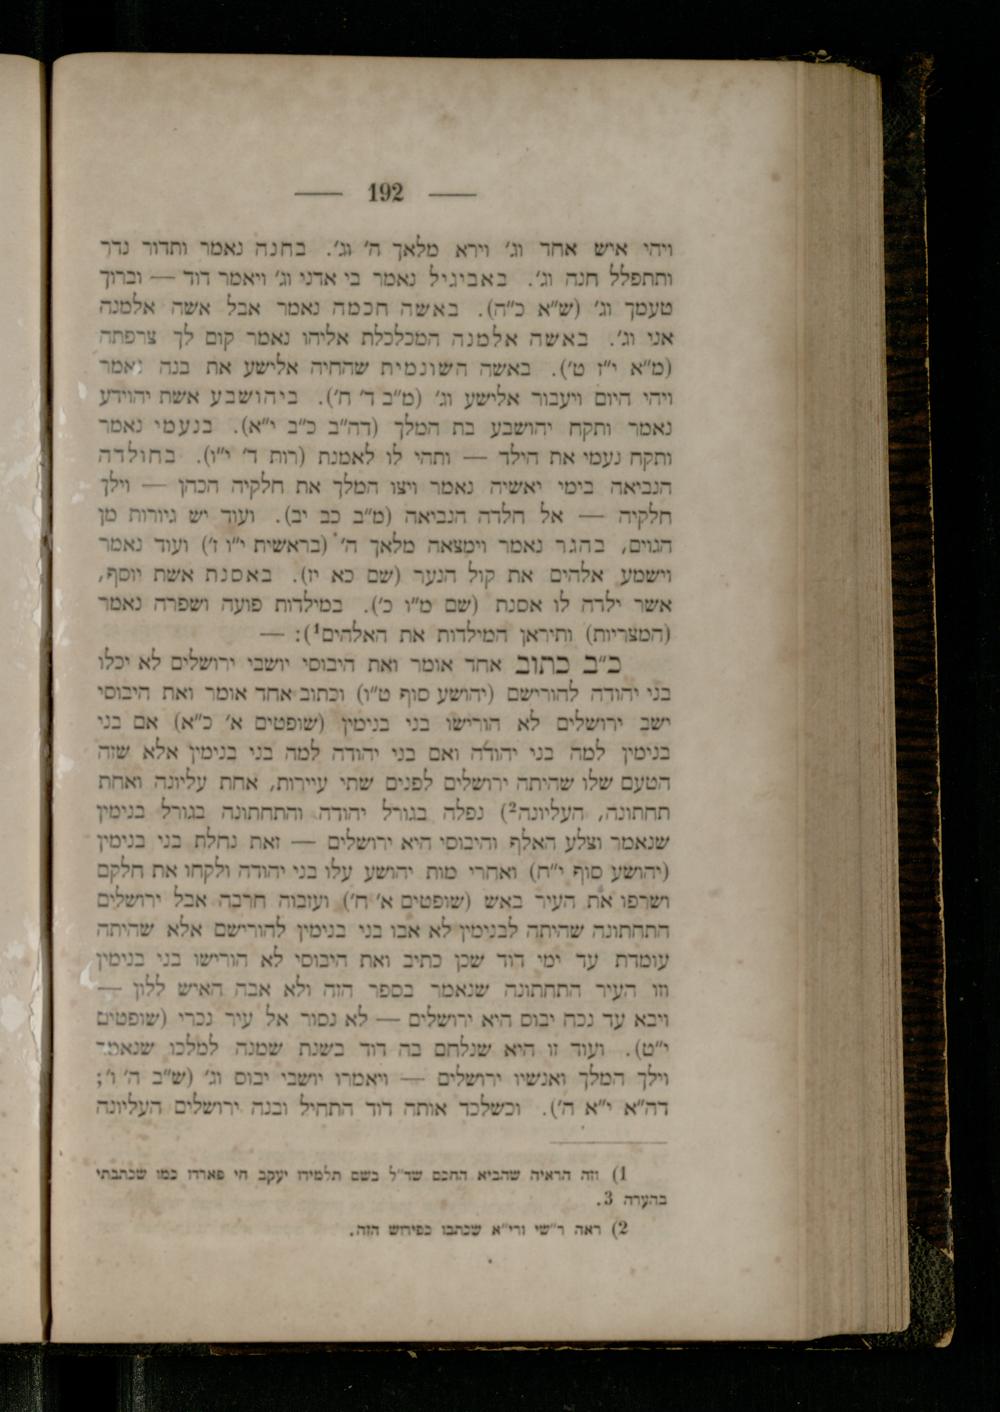 — 192 —
ויהי איש אחד וג׳ וירא מלאך ה׳ וג׳. בחנה נאמר ותדור נדר
ותתפלל חנה וג׳. באביגיל נאמר בי אדני וג׳ ויאמר דוד — וברוך
טעמך וג׳ (ש״א כ״ה). באשה חכמה נאמר אבל אשה אלמנה
אני וג׳. באשה אלמנה המכלכלת אליהו נאמר קום לך צרפתה
(מ״א י״ז ט׳). באשה השונמית שהחיה אלישע את בנה נאמר
ויהי היום ויעבור אלישע וג׳ (מ״ב ד׳ ח׳). ביהושבע אשת יהוידע
נאמר ותקח יהושבע בת המלך (דה״ב כ״ב י״א). בנעמי נאמר
ותקח נעמי את הילד — ותהי לו לאמנת (רות ד׳ י״ו). בחולדה
הנביאה בימי יאשיה נאמר ויצו המלך את חלקיה הכהן — וילך
חלקיה — אל חלדה הנביאה (מ״ב כב יב). ועוד יש גיורות מן
הגוים, בהגר נאמר וימצאה מלאך ה׳ (בראשית י״ו ז׳) ועוד נאמר
וישמע אלהים את קול הנער (שם כא יז). באסנת אשת יוסף,
אשר ילדה לו אסנת (שם מ״ו כ׳). במילדות פועה ושפרה נאמר
(המצריות) ותיראן המילדות את האלהים¹): —
כ״ב כתוב אחד אומר ואת היבוסי יושבי ירושלים לא יכלו
בני יהודה להורישם (יהושע סוף ט״ו) וכתוב אחד אומר ואת היבוסי
ישב ירושלים לא הורישו בני בנימין (שופטים א׳ כ״א) אם בני
בנימין למה בני יהודה ואם בני יהודה למה בני בנימין אלא שזה
הטעם שלו שהיתה ירושלים לפנים שתי עיירות, אחת עליונה ואחת
תחתונה, העליונה²) נפלה בגורל יהודה והתחתונה בגורל בנימין
שנאמר וצלע האלף והיבוסי היא ירושלים — זאת נחלת בני בנימין
(יהושע סוף י״ח) ואחרי מות יהושע עלו בני יהודה ולקחו את חלקם
ושרפו את העיר באש (שופטים א׳ ח׳) ועזבוה חרבה אבל ירושלים
התחתונה שהיתה לבנימין לא אבו בני בנימין להורישם אלא שהיתה
עומדת עד ימי דוד שכן כתיב ואת היבוסי לא הורישו בני בנימין
וזו העיר התחתונה שנאמר בספר הזה ולא אבה האיש ללון —
ויבא עד נכח יבוס היא ירושלים — לא נסור אל עיר נכרי (שופטים
י״ט). ועוד זו היא שנלחם בה דוד בשנת שמנה למלכו שנאמר
וילך המלך ואנשיו ירושלים — ויאמרו יושבי יבוס וג׳ (ש״ב ה׳ ו׳;
דה״א י״א ה׳). וכשלכד אותה דוד התחיל ובנה ירושלים העליונה
1) וזה הראיה שהביא החכם שד״ל בשם תלמידו יעקב חי פארדו כמו שכתבתי
בהערה 3.
2) ראה ר״שי ורי״א שכתבו כפירוש הזה.